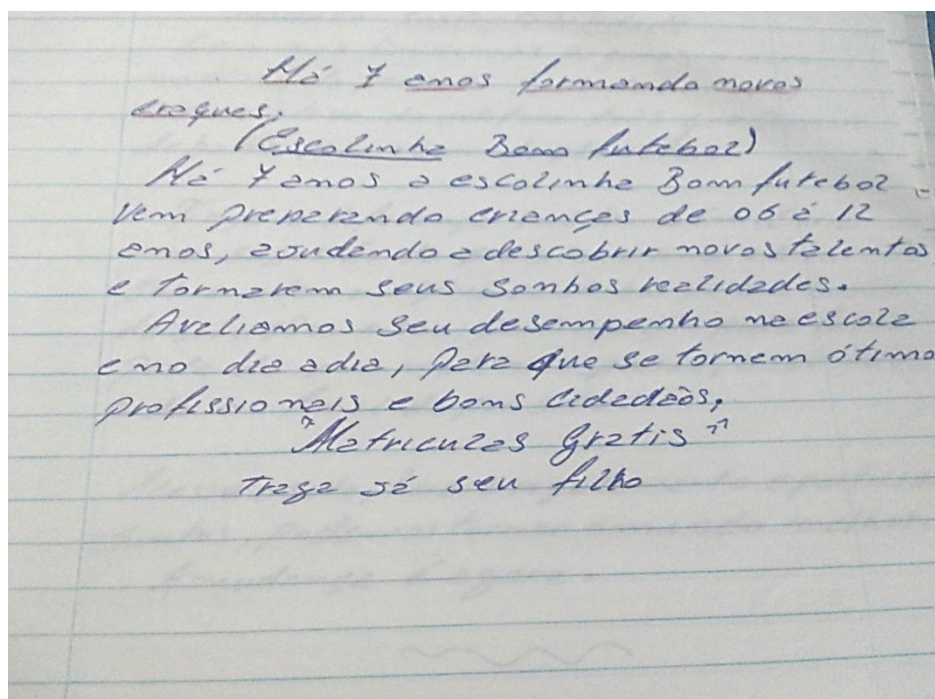 Há 7 anos formando novos
craques.
(Escolinha Bom futebol)
Há 7 anos a escolinha Bom futebol
vem preparando crianças de 06 à 12
anos, ajudando a descobrir novos talentos
e tornarem seus sonhos realidades.
Avaliamos seu desempenho na escola
e no dia a dia, para que se tornem ótimo
profissionais e bons cidadãos,
"Matriculas Gratis"
Traga já seu filho